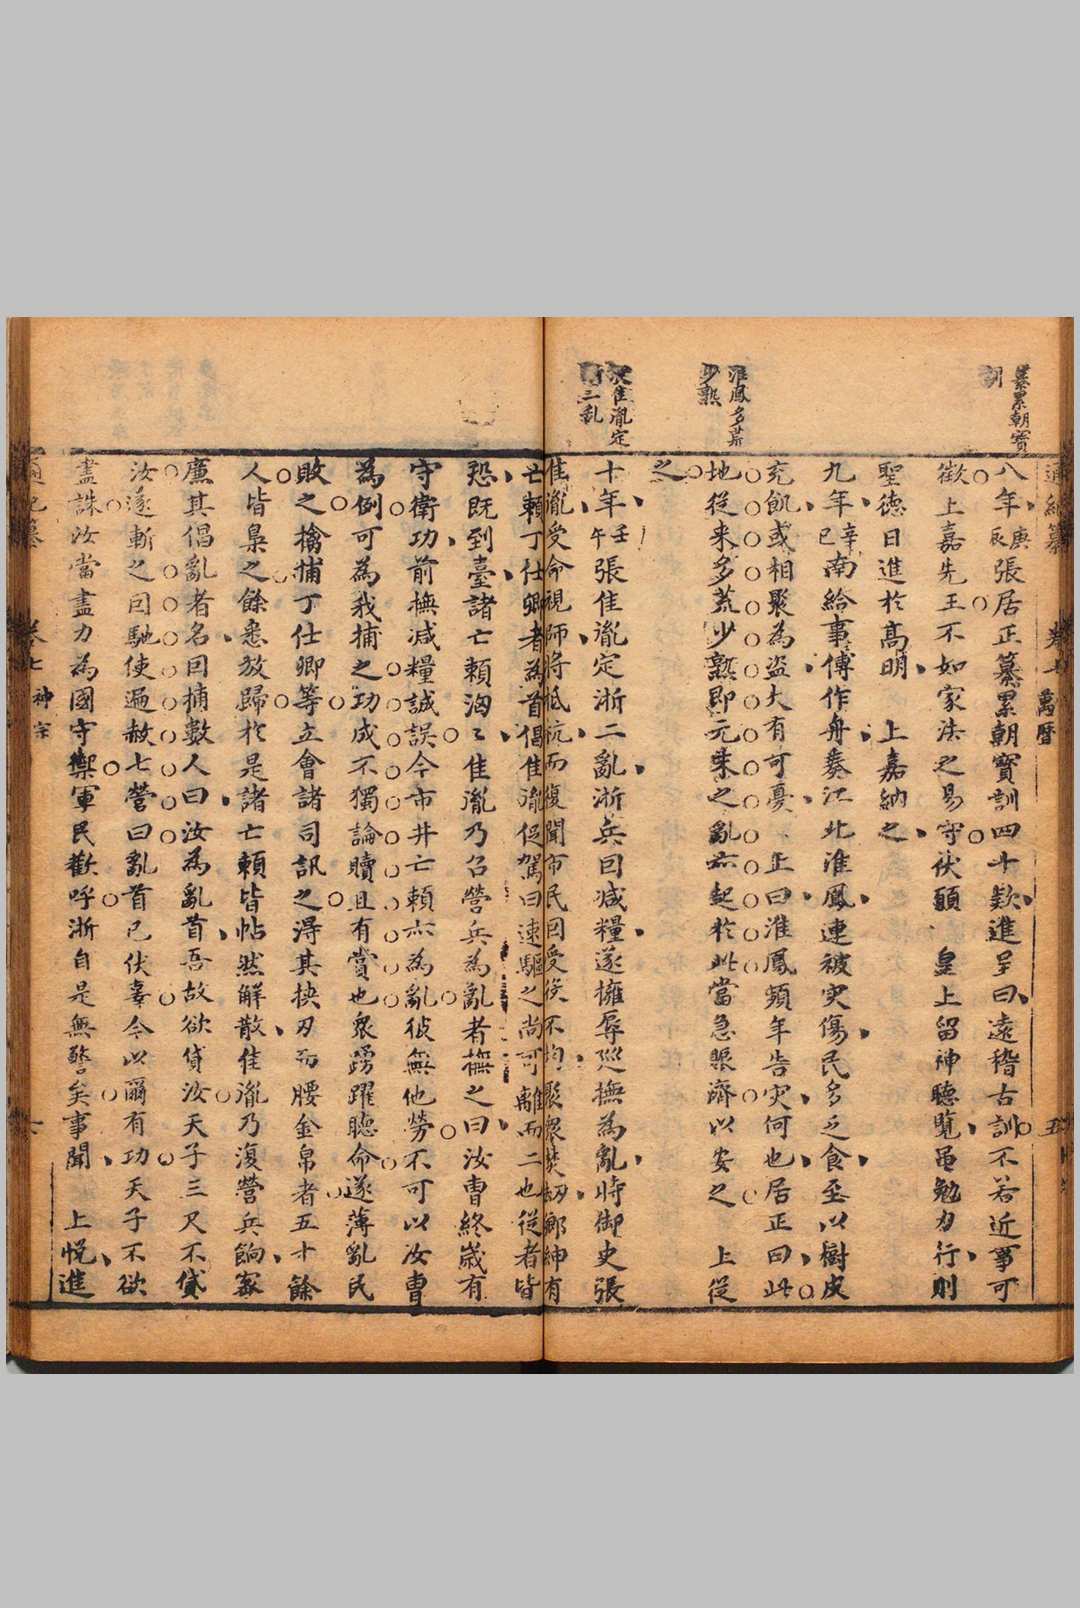 通紀纂 卷七 萬曆 五
纂累朝寶
訓
八年庚辰張居正纂累朝寶訓四十欵進呈曰遠稽古訓不若近事可
徵上嘉先王不如家法之易守伏願 皇上留神聽覽虽勉力行則
聖德日進於高明 上嘉納之
九年辛巳南給事傅作舟奏江北淮鳳連被灾傷民多乏食至以樹皮
淮鳳多荒
少熟
充飢或相聚為盜大有可憂 上曰淮鳳頻年告灾何也居正曰此
地從来多荒少熟即元末之亂亦起於此當急賑濟以安之 上從
之
張佳胤定
浙二乱
十年壬午張佳胤定浙二亂浙兵囙减糧遂擁辱巡撫為亂時御史張
佳胤受命視師將抵杭而復聞市民囙受役不均聚衆焚刼鄉紳有
亡頼丁仕卿者為首倡佳胤促駕曰速驅之尚可離而二也從者皆
恐既到臺諸亡頼洶〻佳胤乃召營兵為亂者撫之曰汝曹終歲有
守衛功前撫减糧誠誤今市井亡頼亦為亂彼無他勞不可以汝曹
為例可為我捕之功成不獨論贖且有賞也衆踴躍聽命遂薄亂民
敗之擒捕丁仕卿等立會諸司訊之淂其挾刃而腰金帛者五十餘
人皆梟之餘悉放歸於是諸亡頼皆帖然解散佳胤乃復營兵餉密
廉其倡亂者名囙捕數人曰汝為亂首吾故欲貸汝天子三尺不貸
汝遂斬之囙馳使遍赦七營曰亂首已伏辜今以爾有功天子不欲
盡誅汝當盡力為國守禦軍民歡呼浙自是無警矣事聞 上悅進
通紀纂 卷七 神宗